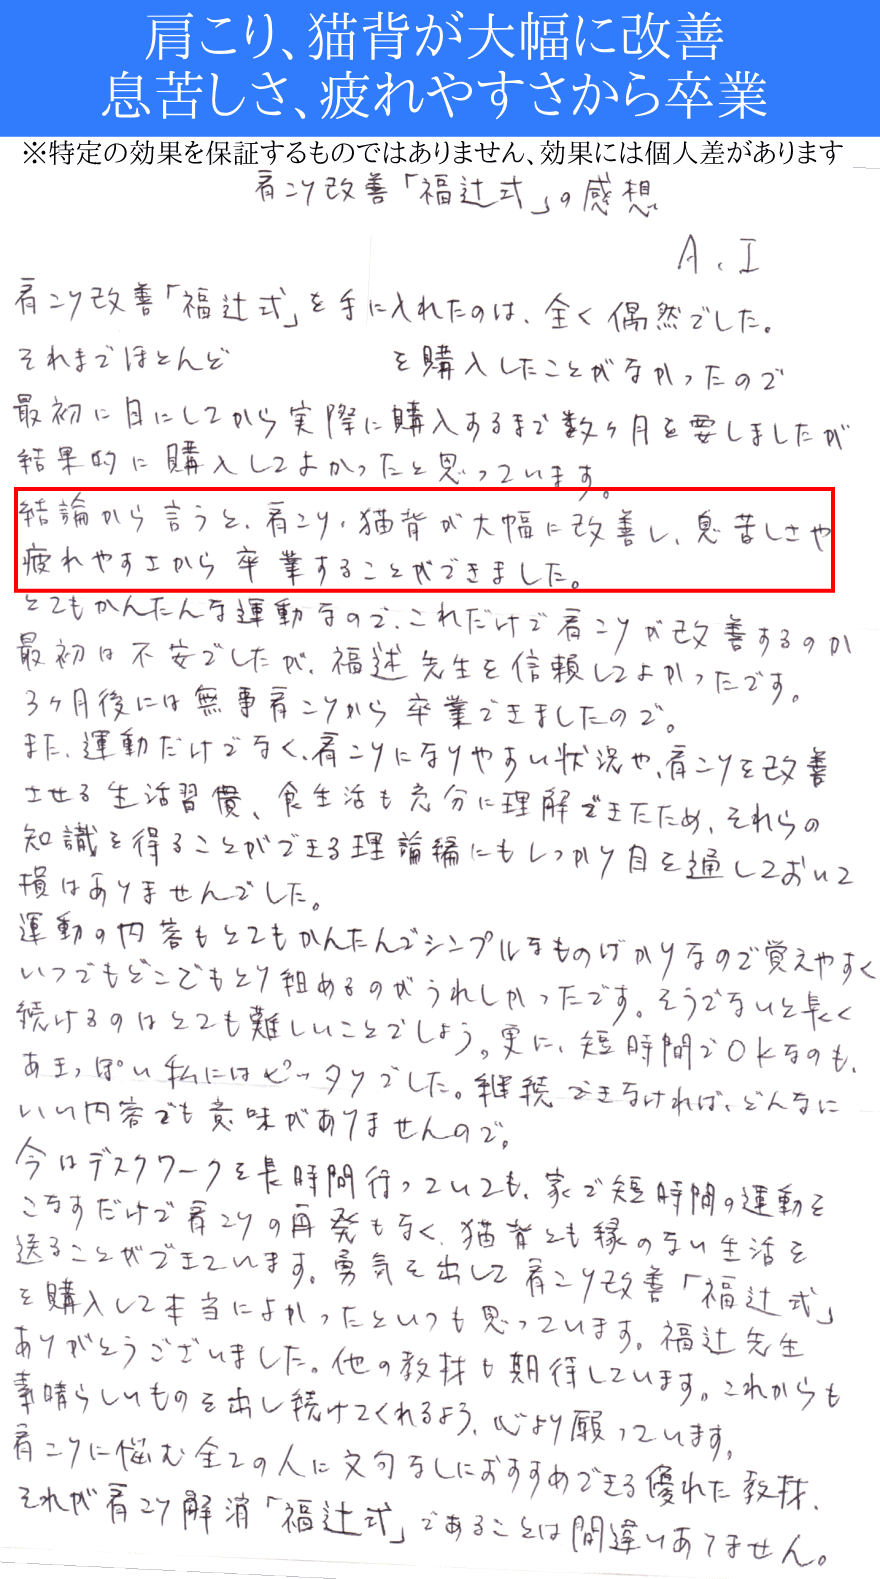 肩こり、猫背が大幅に改善
息苦しさ、疲れやすさから卒業
※特定の効果を保証するものではありません、効果には個人差があります
肩こり改善「福辻式」の感想
A.I
肩こり改善「福辻式」を手に入れたのは、全く偶然でした。
それまでほとんど を購入したことがなかったので
最初に目にしてから実際に購入するまで数ヶ月を要しましたが
結果的に購入してよかったと思っています。
結論から言うと、肩こり、猫背が大幅に改善し、息苦しさや
疲れやすさから卒業することができました。
とてもかんたんな運動なので、これだけで肩こりが改善するのか
最初は不安でしたが、福辻先生を信頼してよかったです。
3ヶ月後には無事肩こりから卒業できましたので。
また、運動だけでなく、肩こりになりやすい状況や、肩こりを改善
させる生活習慣、食生活も充分に理解できたため、それらの
知識を得ることができる理論編にもしっかり目を通しておいて
損はありませんでした。
運動の内容もとてもかんたんでシンプルなものばかりなので覚えやすく
いつでもどこでもとり組めるのがうれしかったです。そうでないと長く
続けるのはとても難しいことでしょう。更に、短時間でOKなのも、
あきっぽい私にはピッタリでした。継続できなければ、どんなに
いい内容でも意味がありませんので。
今はデスクワークを長時間行っていても、家で短時間の運動を
こなすだけで肩こりの再発もなく、猫背とも縁のない生活を
送ることができています。勇気を出して肩こり改善「福辻式」
を購入して本当によかったといつも思っています。福辻先生
ありがとうございました。他の教材も期待しています。これからも
素晴らしいものを出し続けてくれるよう、心より願っています。
肩こりに悩む全ての人に文句なしにおすすめできる優れた教材、
それが肩こり解消「福辻式」であることは間違いありません。